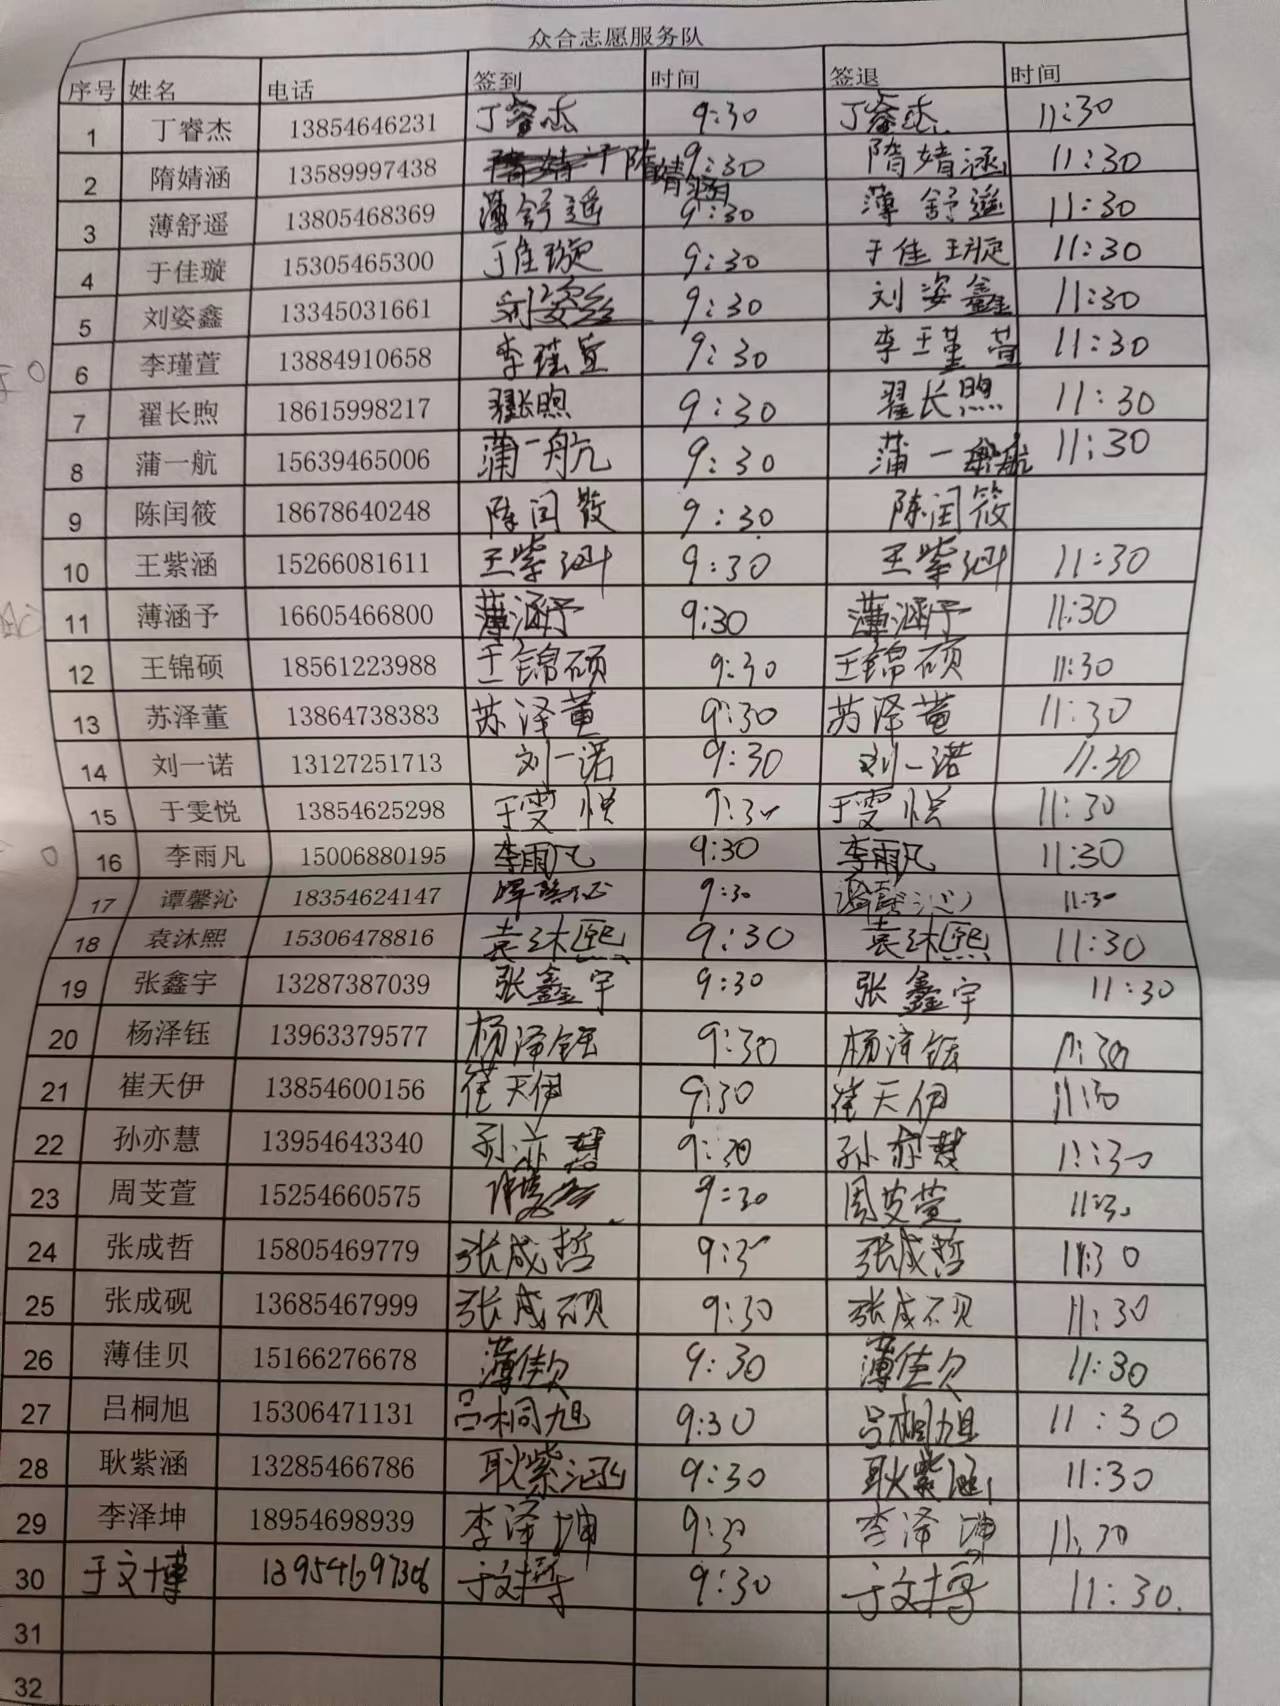 众合志愿服务队
序号 姓名 电话 签到 时间 签退 时间
1 丁睿杰 13854646231 丁睿杰 9:30 丁睿杰 11:30
2 隋婧涵 13589997438 隋婧涵 9:30 隋婧涵 11:30
3 薄舒遥 13805468369 薄舒遥 9:30 薄舒遥 11:30
4 于佳璇 15305465300 于佳璇 9:30 于佳璇 11:30
5 刘姿鑫 13345031661 刘姿鑫 9:30 刘姿鑫 11:30
6 李瑾萱 13884910658 李瑾萱 9:30 李瑾萱 11:30
7 翟长煦 18615998217 翟长煦 9:30 翟长煦 11:30
8 蒲一航 15639465006 蒲一航 9:30 蒲一航 11:30
9 陈闰筱 18678640248 陈闰筱 9:30 陈闰筱
10 王紫涵 15266081611 王紫涵 9:30 王紫涵 11:30
11 薄涵予 16605466800 薄涵予 9:30 薄涵予 11:30
12 王锦硕 18561223988 王锦硕 9:30 王锦硕 11:30
13 苏泽董 13864738383 苏泽董 9:30 苏泽董 11:30
14 刘一诺 13127251713 刘一诺 9:30 刘一诺 11.30
15 于雯悦 13854625298 于雯悦 9:30 于雯悦 11:30
16 李雨凡 15006880195 李雨凡 9:30 李雨凡 11:30
17 谭馨沁 18354624147 9:30 谭馨沁 11:30
18 袁沐熙 15306478816 袁沐熙 9:30 袁沐熙 11:30
19 张鑫宇 13287387039 张鑫宇 9:30 张鑫宇 11:30
20 杨泽钰 13963379577 杨泽钰 9:30 杨泽钰 11:30
21 崔天伊 13854600156 崔天伊 9:30 崔天伊 11:30
22 孙亦慧 13954643340 孙亦慧 9:30 孙亦慧 11:30
23 周芠萱 15254660575 9:30 周芠萱 11:30
24 张成哲 15805469779 张成哲 9:30 张成哲 11:30
25 张成砚 13685467999 张成砚 9:30 张成砚 11:30
26 薄佳贝 15166276678 薄佳贝 9:30 薄佳贝 11:30
27 吕桐旭 15306471131 吕桐旭 9:30 吕桐旭 11:30
28 耿紫涵 13285466786 耿紫涵 9:30 耿紫涵 11:30
29 李泽坤 18954698939 李泽坤 9:30 李泽坤 11:30
30 于文博 13954697306 于文博 9:30 于文博 11:30.
31
32